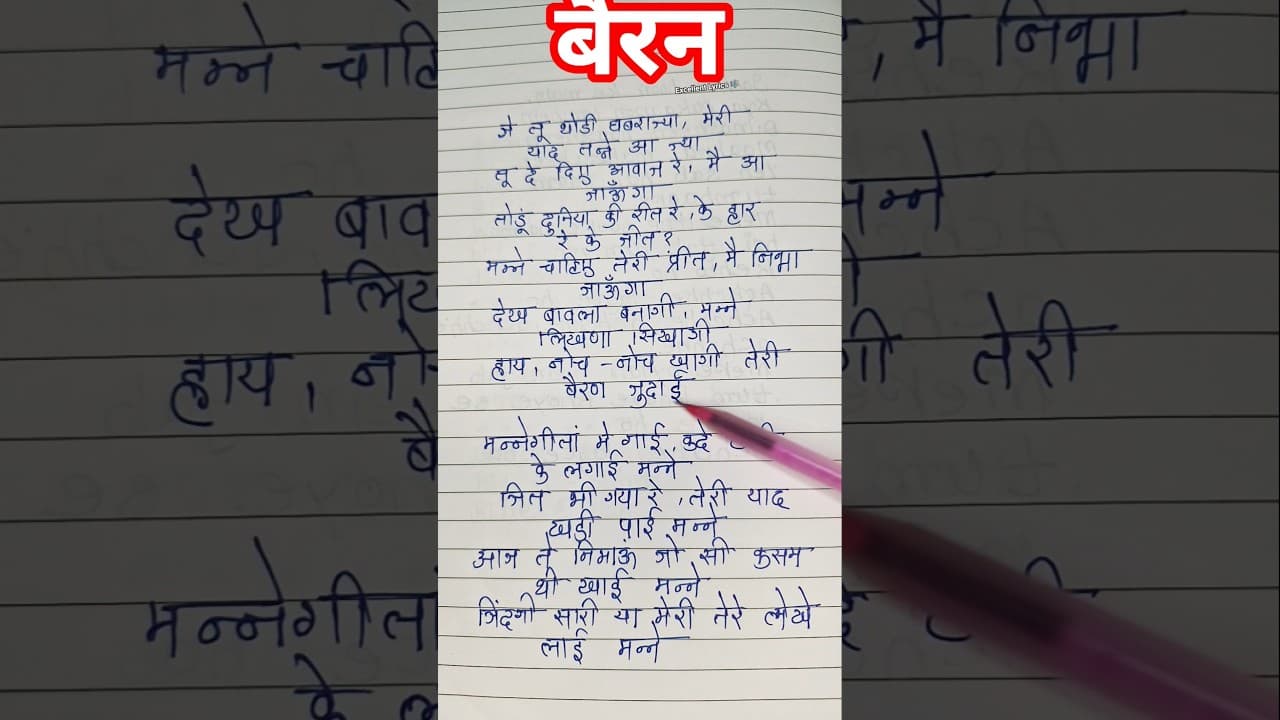 बैरन
Excellent Lyrics
जे तू थोडी घबराज्या, मेरी
याद तन्ने आ ज्या
तू दे दिए आवाज रे, मै आ
जाऊँगा
तोडूं दुनिया की रीत रे, के हार
रे के जीत?
मन्ने चाहिए तेरी प्रीत, मै निभा
जाऊँगा
देख बावला बनागी, मन्ने
लिखणा सिखागी
हाय, नोच - नोच खागी तेरी
बैरण जुदाई
मन्नेगीतां मे गाई, कदे
के लगाई मन्ने
जित भी गया रे, तेरी याद
खडी पाई मन्ने
आज ते निभाऊ जो सी कसम
थी खाई मन्ने
जिंदगी सारी या मेरी तेरे लेखे
लाई मन्ने